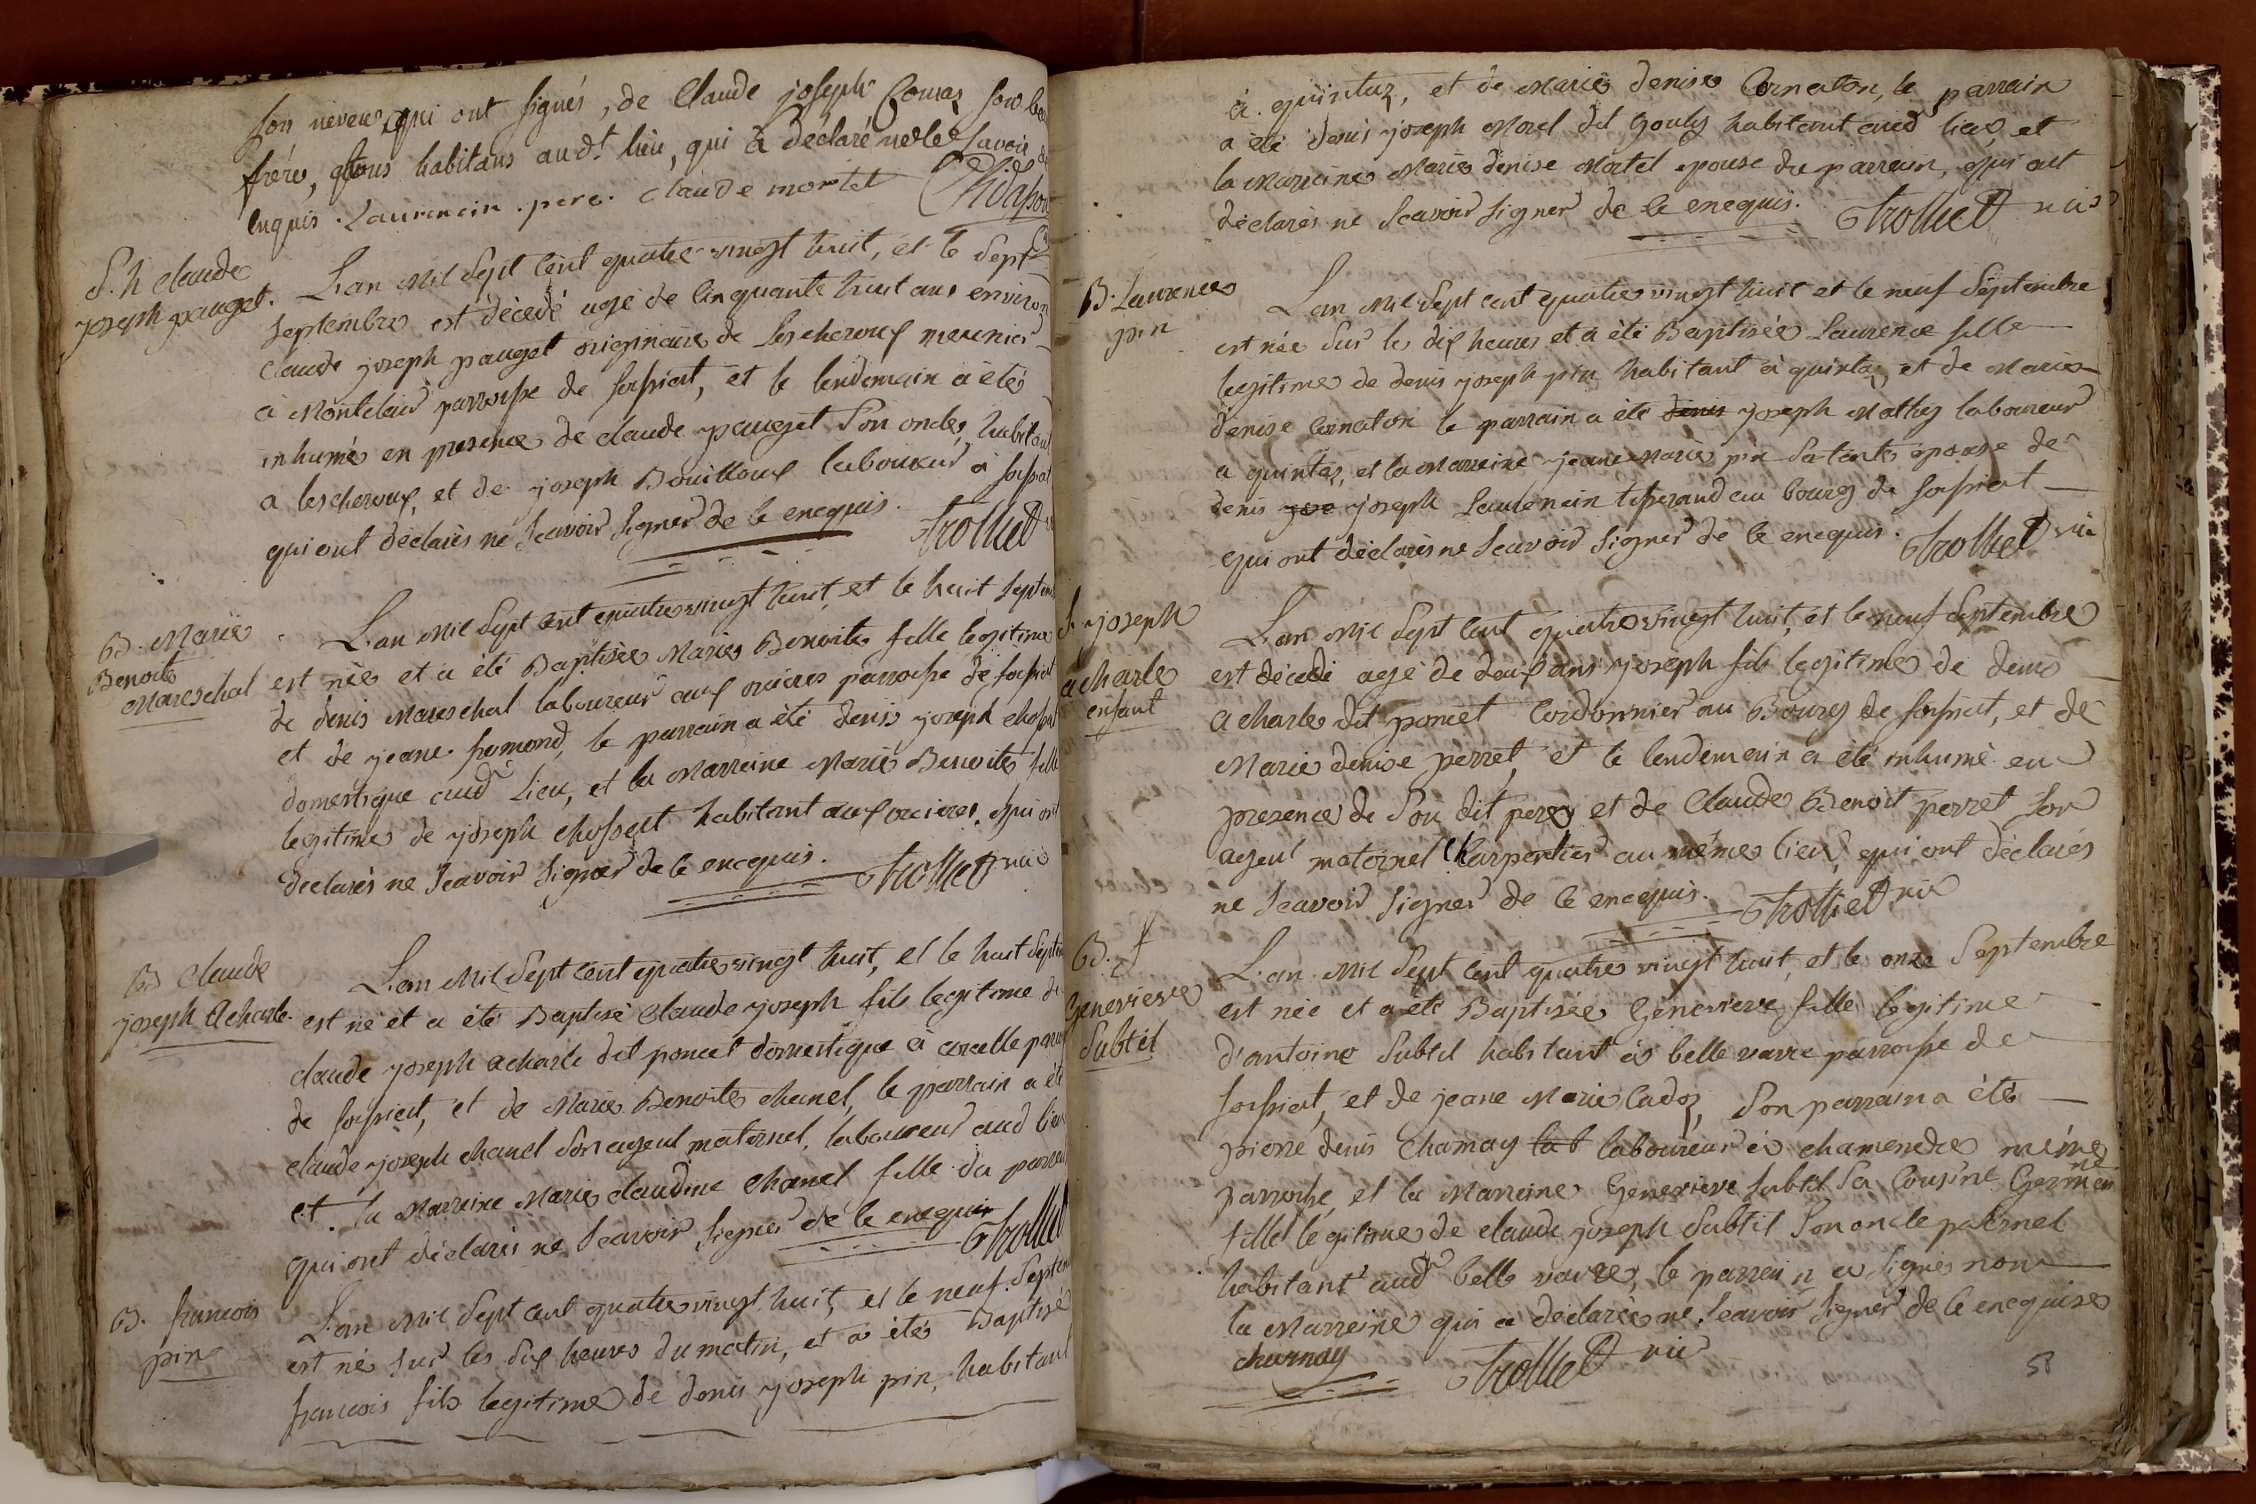 son neveu, qui ont signés, de Claude joseph Comas son beau
frére, tous habitans aud.t lieu, qui a déclaré ne le savoir de
enquis. Laurencin. pere. claude mortel Chidafson
S. h claude
joseph pauget.
L'an Mil Sept cent quatre vingt huit, et le Sept
Septembre est décédé agé de cinquante huit ans environ
Claude joseph pauget originaire de Lescheroux meunier
à Montclair parroisse de foissiat, et le lendemain a étés
inhumés en presence de claude pauget Son oncle, habitant
a lescheroux, et de joseph Bouilloux laboureur à foissiat
qui ont déclarés ne Scavoir Signer de ce enequis.
Trolliet vic
B. Marie
Benoite
Mareschal
L'an Mil Sept cent quatre vingt huit, et le huit Septem
est née et a été Baptisée Marie Benoite fille legitime
de denis Mareschal laboureur aux orcieres parroisse de foissiat
et de jeane fromond, le parrain a été denis joseph chossat
domestique aud.t Lieu, et la Marreine Marie Benoite fille
legitime de joseph chossat habitant aux orcieres. qui ont
declarés ne Scavoir Signer de ce enequis. Trolliet vic
B claude
joseph Acharle.
L'an Mil Sept cent quatre vingt huit, et le huit Septem
est né et a été Baptisé Claude joseph fils legitime de
claude joseph acharle dit poncet domestique à corcelle parroi
de foissiat, et de Marie Benoite chanel, le parrain a été
claude joseph chanel Son ayeul maternel, laboureur aud lieu
et. la Marreine Marie claudine chanel fille du parrain
qui ont déclarés ne Scavoir Signer de ce enequis
Trolliet
B. francois
pin
L'an Mil Sept cent quatre vingt huit, et le neuf Septem
est né Sur les dix heures du matin, et a étés Baptisé
francois fils legitime de denis joseph pin, habitant
à quintaz, et de Marie denise Cornaton, le parrain
a été denis joseph Morel dit Gouly habitant aud lieu, et
la Marreine Marie denise Martel epouse du parrain, qui ont
déclarés ne Scavoir Signer de ce enequis. Trolliet vic
B. Laurence
pin
L'an Mil Sept cent quatre vingt huit et le neuf Septembre
est née Sur les dix heures et a été Baptisée Laurence fille
legitime de denis joseph pin habitant à quintaz, et de Marie
denise Cornaton le parrain a été denis joseph Mathy laboureur
a quintaz, et la Marreine jeane Marie pin Sa tante épouse de
denis jose joseph Laurencin tisserand au bourg de foissiat
qui ont déclarés ne Scavoir Signer de ce enequis. Trolliet vic
S. joseph
acharle
enfant
L'an Mil Sept cent quatre vingt huit, et le neuf Septembre
est décedé agé de deux ans joseph fils legitime de denis
acharle dit poncet Cordonnier au Bourg de foissiat, et de
Marie denise perret, et le lendemain a été inhumé en
presence de Son dit pere, et de Claude Benoit perret Son
ayeul maternel Charpentier au mémes lieu, qui ont déclarés
ne Scavoir Signer de ce enequis. Trolliet vic
B.
Genevieve
Subtil
L'an Mil Sept cent quatre vingt huit, et le onze Septembre
est née et a été Baptisée Genevieve fille legitime
d'antoine Subtil habitant à belle vavre parroisse de
foissiat, et de jeane Marie Cadoz, Son parrain a étés
pierre denis Charnay lab laboureur à chamendre méme
parroisse, et la Marreine Genevieve Subtil Sa Cousine Germaine
fille legitime de claude joseph Subtil Son oncle paternel
habitant aud.t belle vavre, le parrain a signé non
la Marreine qui a declarée ne Scavoir Signer de ce enequise
charnay Trolliet vic